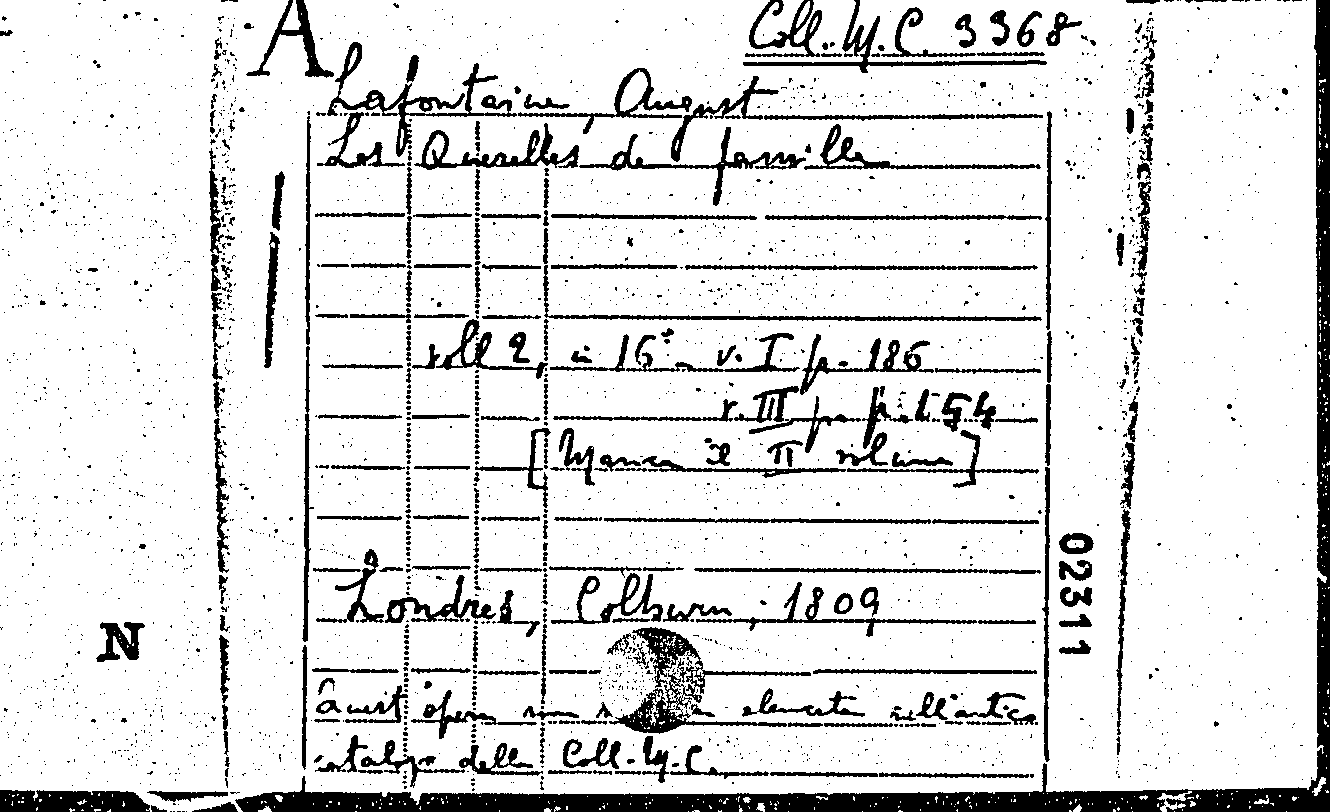 A
Coll. M. C. 3368
Lafontaine, August
Les Querelles de famille
voll 2, in 16° v. I p. 186
v. III p. p. 154
[Manca il II volume]
Londres, Colburn, 1809
02311
N
Quest'opera non elencata nell'antico
catalogo della Coll. M. C.